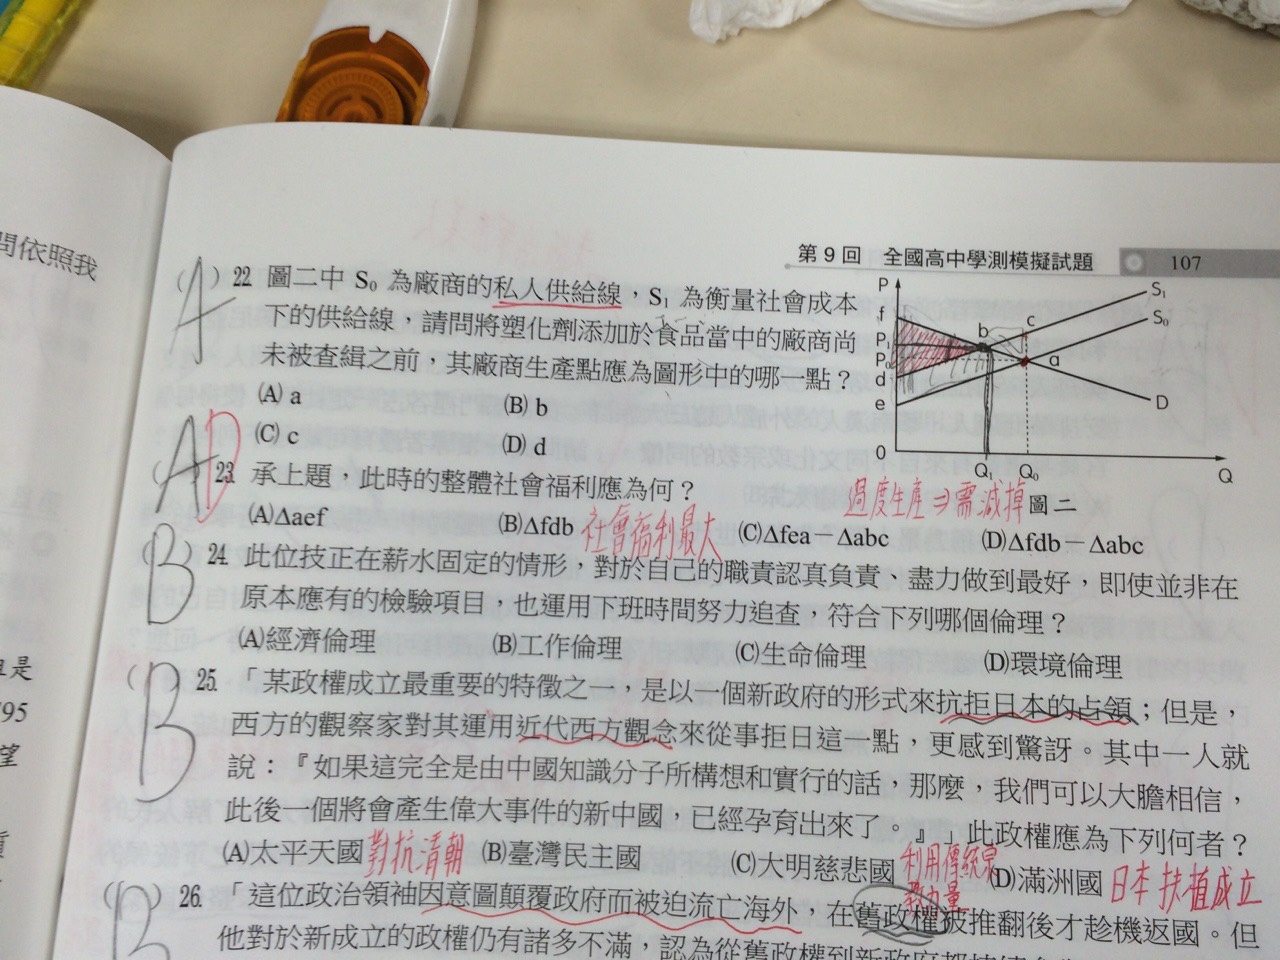 問依照我
是
95
望
第 9 回 全國高中學測模擬試題 107
(A) 22 圖二中 S₀ 為廠商的私人供給線，S₁ 為衡量社會成本
下的供給線，請問將塑化劑添加於食品當中的廠商尚
未被查緝之前，其廠商生產點應為圖形中的哪一點？
(A) a (B) b
(C) c (D) d
P
f
P₁
P
d
e
0
b
c
a
S₁
S₀
D
Q₁ Q₀
Q
圖二
過度生產⇒需減掉
(A) D 23 承上題，此時的整體社會福利應為何？
(A)Δaef (B)Δfdb 社會福利最大 (C)Δfea－Δabc (D)Δfdb－Δabc
(B) 24 此位技正在薪水固定的情形，對於自己的職責認真負責、盡力做到最好，即使並非在
原本應有的檢驗項目，也運用下班時間努力追查，符合下列哪個倫理？
(A)經濟倫理 (B)工作倫理 (C)生命倫理 (D)環境倫理
(B) 25 「某政權成立最重要的特徵之一，是以一個新政府的形式來抗拒日本的占領；但是，
西方的觀察家對其運用近代西方觀念來從事拒日這一點，更感到驚訝。其中一人就
說：『如果這完全是由中國知識分子所構想和實行的話，那麼，我們可以大膽相信，
此後一個將會產生偉大事件的新中國，已經孕育出來了。』」此政權應為下列何者？
(A)太平天國 對抗清朝 (B)臺灣民主國 (C)大明慈悲國 利用傳統宗教力量 (D)滿洲國 日本扶植成立
(B) 26 「這位政治領袖因意圖顛覆政府而被迫流亡海外，在舊政權被推翻後才趁機返國。但
他對於新成立的政權仍有諸多不滿，認為從舊政權到新政府都持續